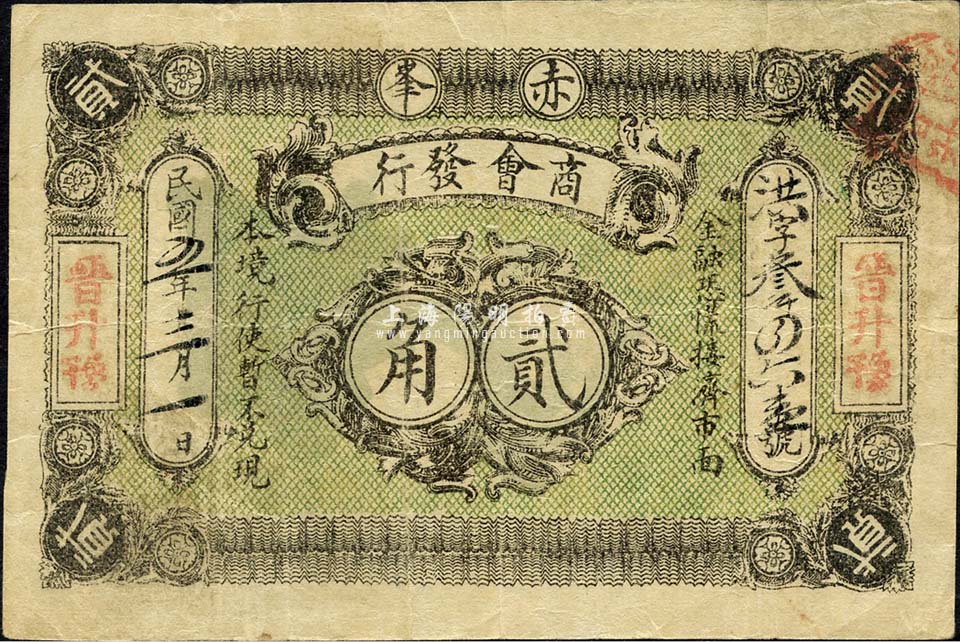 赤峯
商會發行
貳角
貳
貳
貳
貳
洪字叁千四六壹號
金融恐慌接齊市面
本境行使暫不兌現
民國五年三月一日
晉升豫
晉升豫
上海陽明拍賣
www.yangmingauction.com